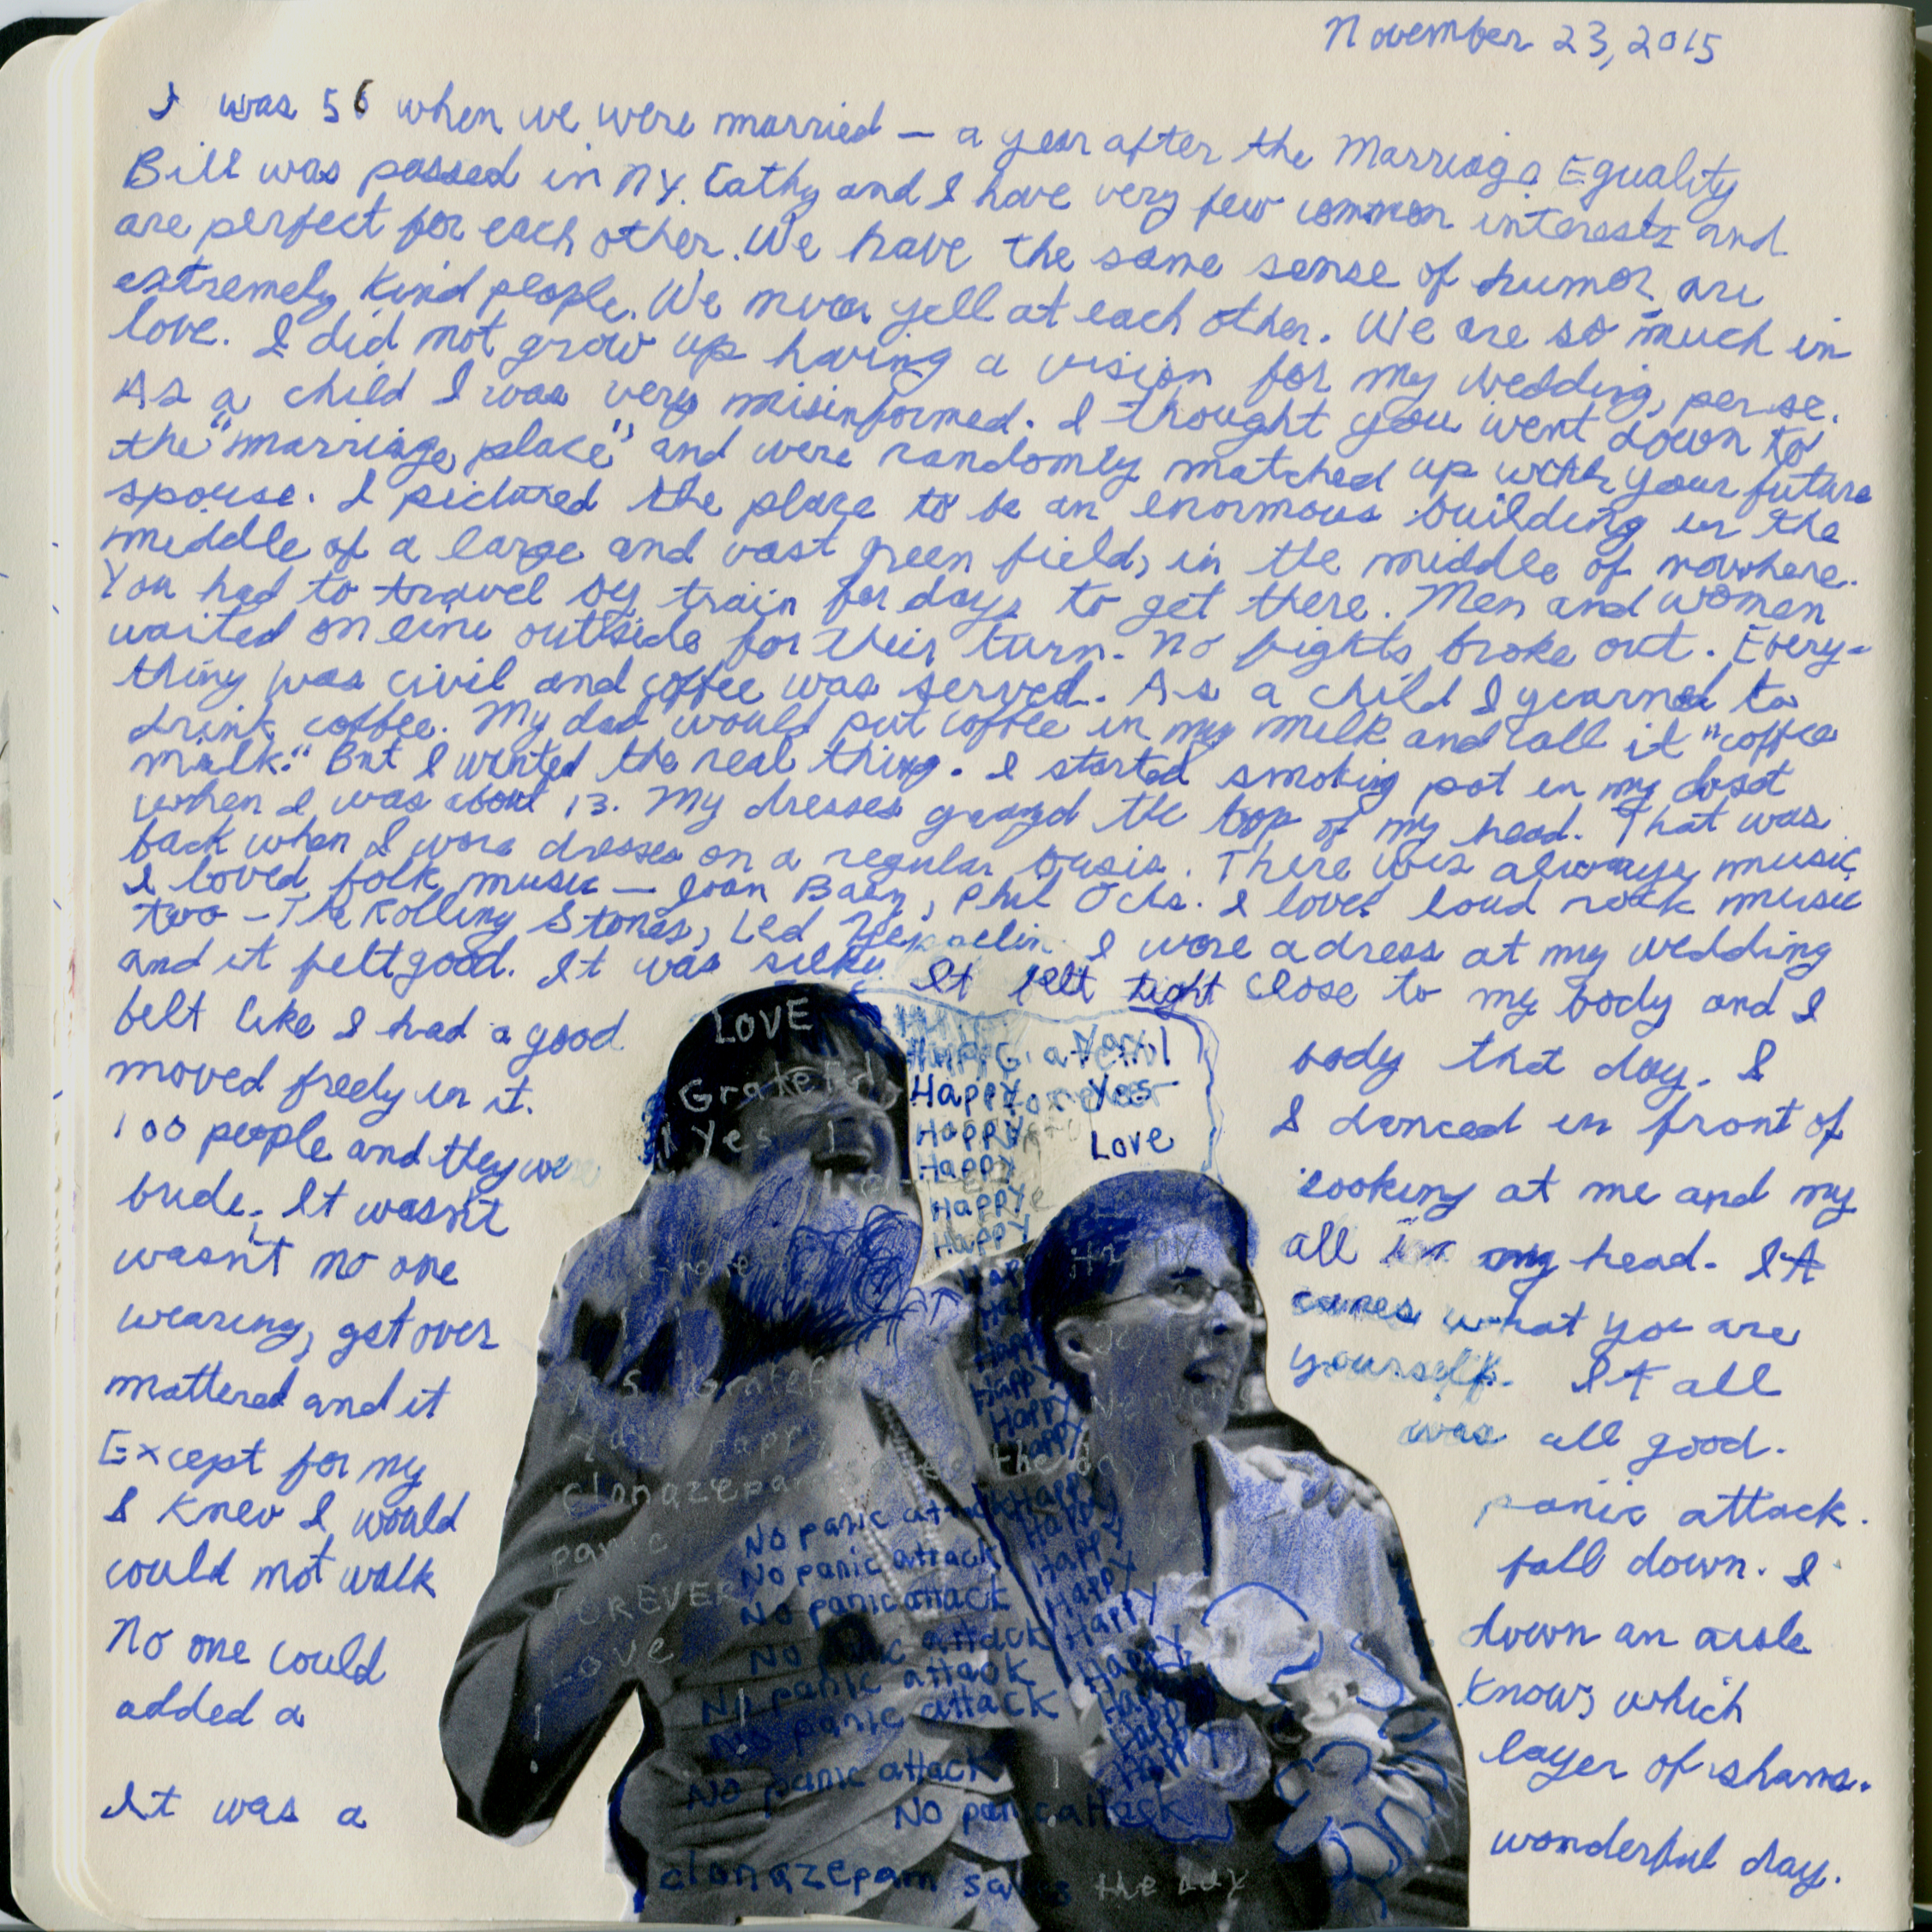 November 23, 2015
I was 56 when we were married — a year after the Marriage Equality
Bill was passed in NY. Cathy and I have very few common interests and
are perfect for each other. We have the same sense of humor, are
extremely kind people. We never yell at each other. We are so much in
love. I did not grow up having a vision for my wedding, per se.
As a child I was very misinformed. I thought you went down to
the "marriage place" and were randomly matched up with your future
spouse. I pictured the place to be an enormous building in the
middle of a large and vast green field, in the middle of nowhere.
You had to travel by train for days to get there. Men and women
waited on line outside for their turn. No fights broke out. Every-
thing was civil and coffee was served. As a child I yearned to
drink coffee. My dad would put coffee in my milk and call it "coffee
milk." But I wanted the real thing. I started smoking pot in my closet
when I was about 13. My dresses grazed the top of my head. That was
back when I wore dresses on a regular basis. There was always music.
I loved folk music — Joan Baez, Phil Ochs. I loved loud rock music
two — The Rolling Stones, Led Zeppelin. I wore a dress at my wedding
and it felt good. It was silky. It felt tight close to my body and I
felt like I had a good body that day. I
moved freely in it. I danced in front of
100 people and they were looking at me and my
bride. It wasn't all in my head. It
wasn't no one cares what you are
wearing, get over yourself. It all
mattered and it was all good.
Except for my panic attack.
I knew I would fall down. I
could not walk down an aisle
No one could know, which
added a layer of shame.
It was a wonderful day.
LOVE
Grateful
Yes
Happy Yes
Happy Love
Happy
Happy
Happy
Happy
Happy
Happy
Happy
Happy
Yes Grateful
Happy
clonazepam the day
panic
FOREVER
Love
No panic attack Happy
No panic attack Happy
No panic attack Happy
No panic attack Happy
No panic attack Happy
No panic attack Happy
No panic attack Happy
No panic attack
clonazepam saves the day